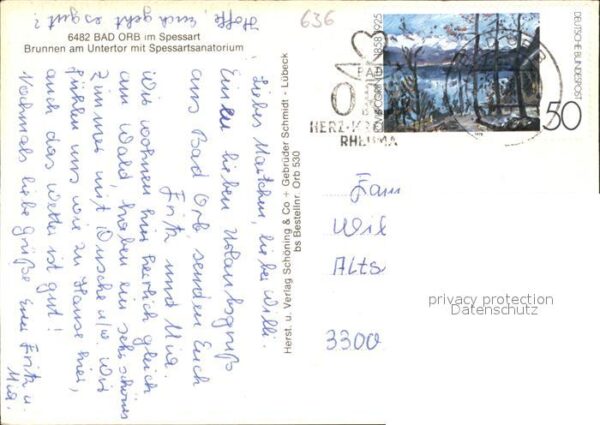 6482 BAD ORB im Spessart
Brunnen am Untertor mit Spessartsanatorium
Hoffe, Euch geht es gut?
636
Liebes Martchen, lieber Willi.
Einen lieben Urlaubsgruß
aus Bad Orb, senden Euch
Fritz und Mia.
Wir wohnen hier herrlich gleich
am Wald, haben ein sehr schönes
Zimmer mit Dusche u/w. Wir
fühlen uns wie zu Hause hier,
auch das Wetter ist gut!
Nochmals liebe Grüße Eure Fritz u.
Mia.
Herst. u. Verlag Schöning & Co + Gebrüder Schmidt - Lübeck
bs Bestellnr. Orb 530
1858 1925
DEUTSCHE BUNDESPOST
50
BAD
HERZ-
RHEUMA
Fam
Wil
Alts
3300
privacy protection
Datenschutz